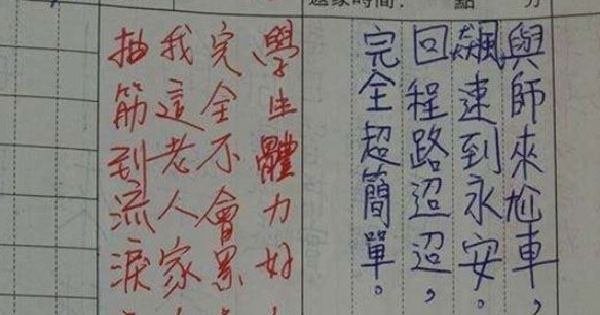 時間： 點 分
與師來尬車，
飆速到永安。
回程路迢迢，
完全超簡單。
學生體力好
完全不會累
我這老人家
抽筋到流淚